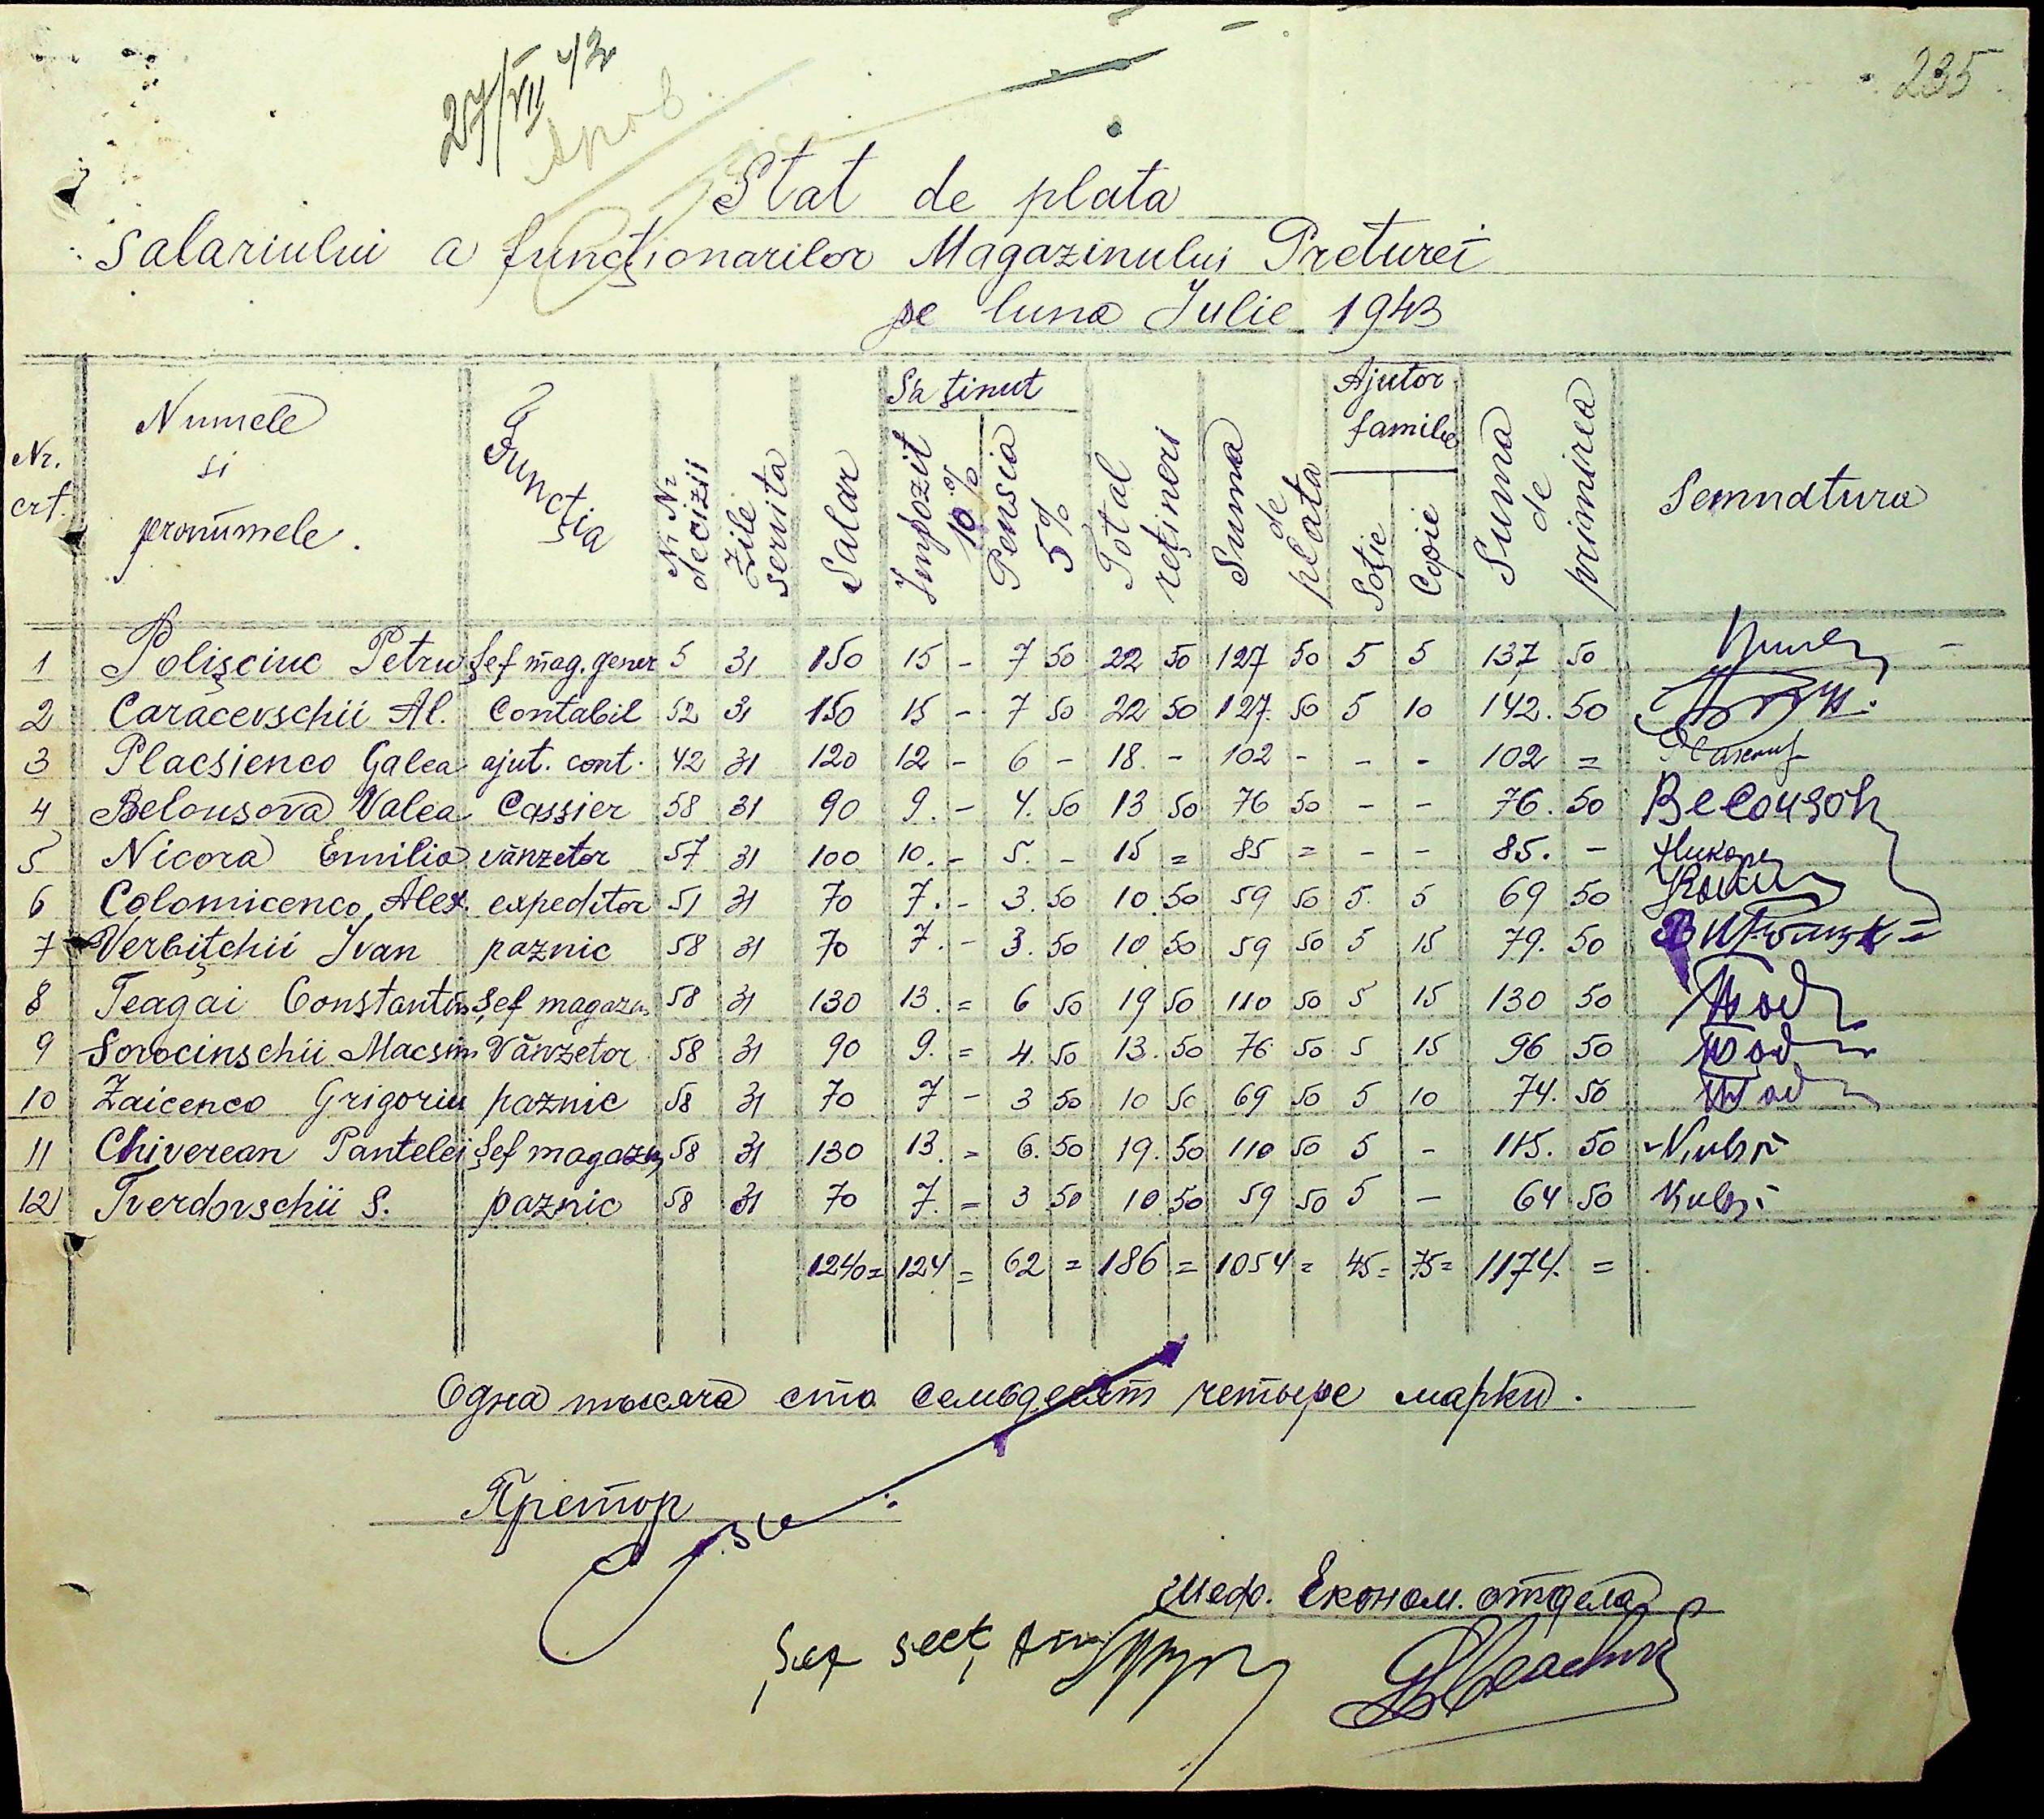 235
27/VII 43
Stat de plata
salariului a funcționarilor Magazinului Preturei
pe luna Julie 1943
Nr. crt. Numele si pronumele. Funcția Nr Nr decizii Zile servita Salar Sa ținut Impozit 10% Pensia 5% Total rețineri Suma de plata Ajutor familie Soție Copie Suma de priimirea Semnatura
1 Polișciuc Petru șef mag. gener 5 31 150 15 - 7 50 22 50 127 50 5 5 137 50
2 Caracevschii Al. Contabil 52 31 150 15 - 7 50 22 50 127. 50 5 10 142. 50
3 Placsienco Galea ajut. cont. 42 31 120 12 - 6 - 18. - 102 - - - 102 =
4 Belousova Valea Cassier 58 31 90 9. - 4. 50 13 50 76 50 - - 76. 50 Belousov
5 Nicora Emilia vănzetor 57 31 100 10. - 5. - 15 = 85 = - - 85. -
6 Colomicenco Alex. expeditor 51 31 70 7. - 3. 50 10. 50 59 50 5. 5 69 50
7 Verbițchii Ivan paznic 58 31 70 7. - 3. 50 10 50 59 50 5 15 79. 50
8 Teagai Constantin șef magazin 58 31 130 13. = 6 50 19 50 110 50 5 15 130 50
9 Sorocinschii Macsim Vănzetor 58 31 90 9. = 4. 50 13. 50 76 50 5 15 96 50
10 Zaicenco Grigoriu paznic 58 31 70 7 - 3 50 10 50 69 50 5 10 74. 50
11 Chiverean Pantelei șef magazin 58 31 130 13. = 6. 50 19. 50 110 50 5 - 115. 50
12 Tverdovschii S. paznic 58 31 70 7. = 3 50 10. 50 59 50 5 - 64 50
1240 = 124 = 62 = 186 = 1054 = 45 = 75 = 1174. =
Одна тысяча сто семьдесят четыре марки.
Претор
Шеф. Економ. отдела
Șef secț